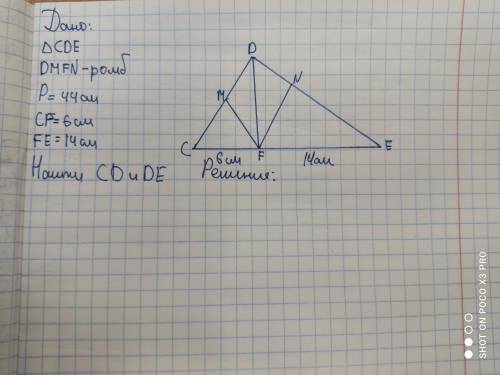 Дано:
ΔCDE
DMFN-ромб
P=44см
CF=6см
FE=14см
Найти CD и DE
Решение:
D
M
N
C
F
E
6см
14см
SHOT ON POCO X3 PRO